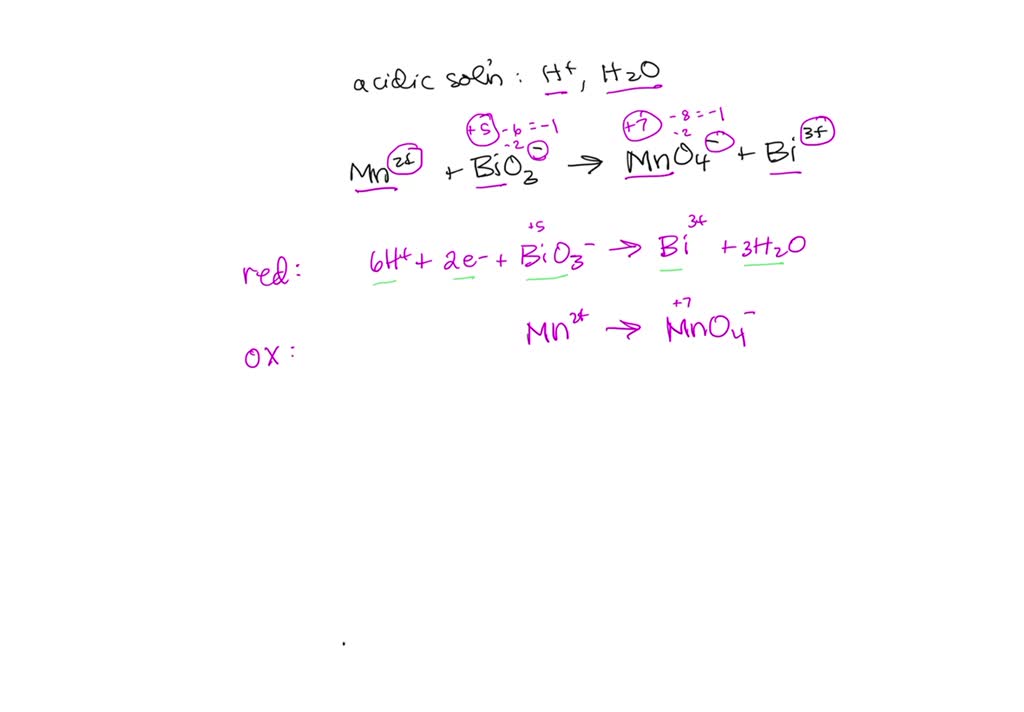 acidic sol'n : H⁺, H₂O
+5 -6 = -1 +7 -8 = -1
-2 -2
Mn²⁺ + BiO₃⁻ → MnO₄⁻ + Bi³⁺
+5
red: 6H⁺ + 2e⁻ + BiO₃⁻ → Bi³⁺ + 3H₂O
+7
ox: Mn²⁺ → MnO₄⁻